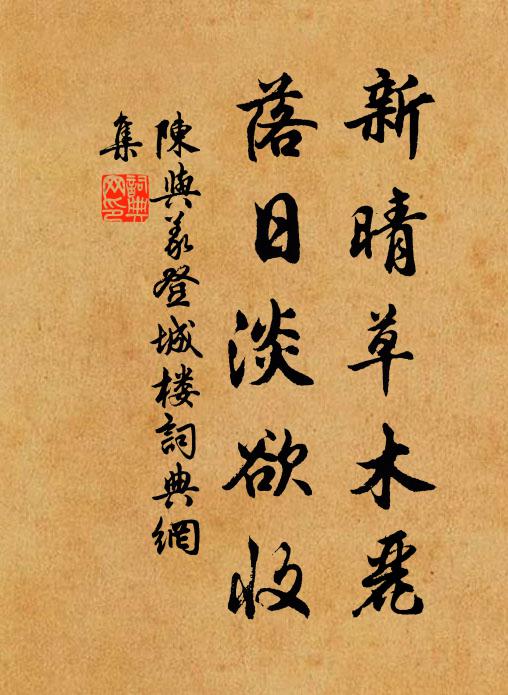 新晴草木麗
落日淡欲收
陳與義登城楼詞典網
集
詞典
网印